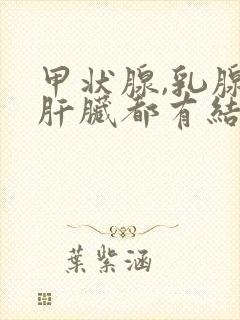 甲状腺,乳腺
肝臟都有結
葉紫涵